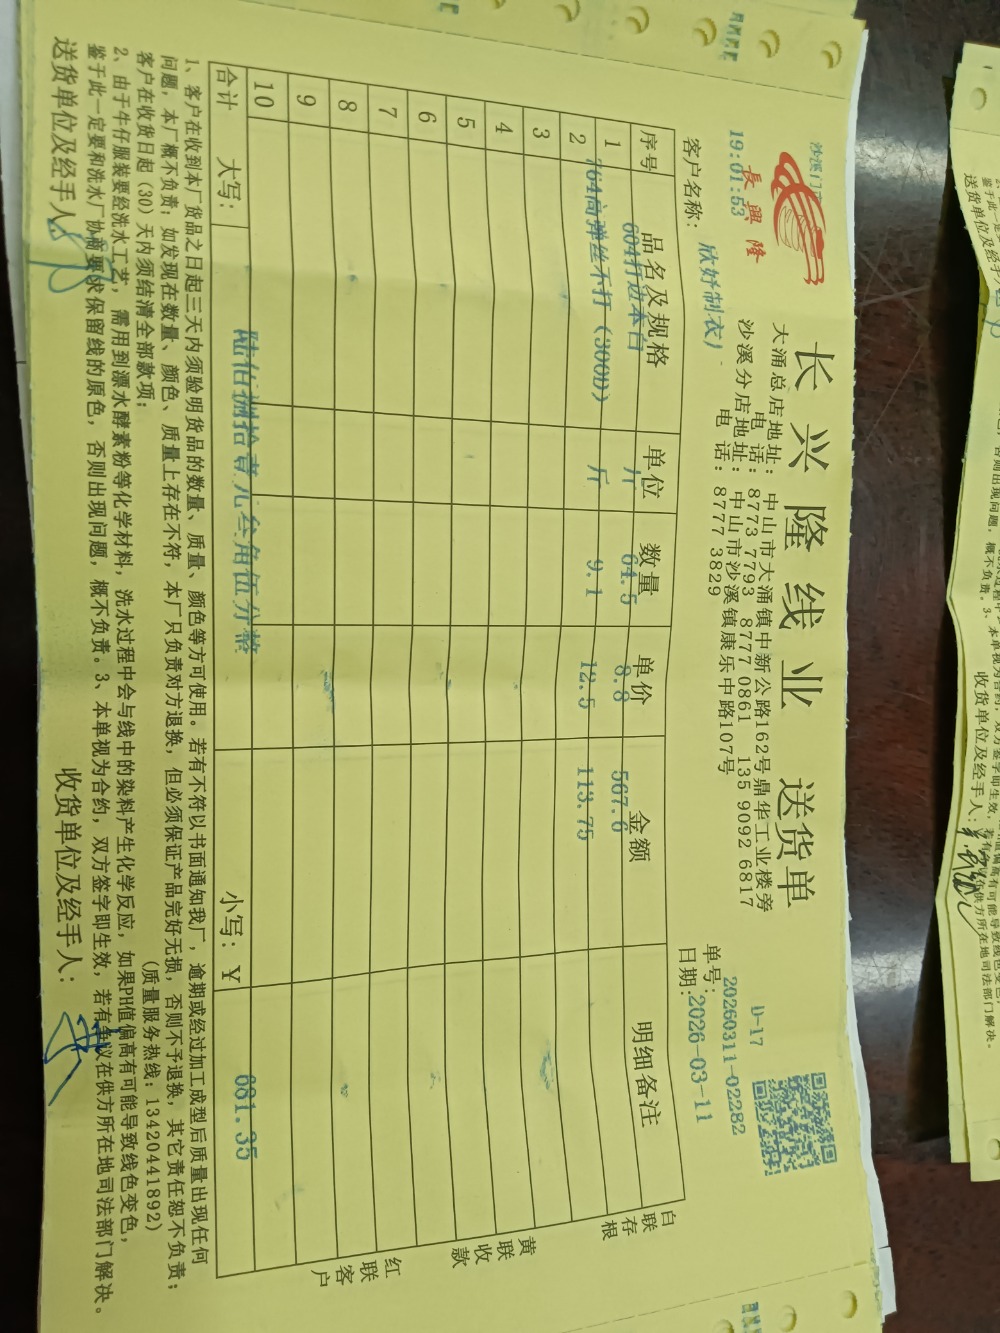 长兴隆线业 送货单
沙溪门
19:01:53
長興隆
大涌总店地址：中山市大涌镇中新公路162号鼎华工业楼旁
电话：8773 7793 8777 0861 135 9092 6817
沙溪分店地址：中山市沙溪镇康乐中路107号
电话：8777 3829
D-17
单号：20260311-02282
日期：2026-03-11
客户名称：欣好制衣厂
序号 品名及规格 单位 数量 单价 金额 明细备注
1 604打边本白 斤 64.5 8.8 567.6
2 764高弹丝不打（300D） 斤 9.1 12.5 113.75
3
4
5
6
7
8
9
10
合计 大写：陆佰捌拾壹元叁角伍分整 小写：￥ 681.35
白联存根
黄联收款
红联客户
1、客户在收到本厂货品之日起三天内须验明货品的数量、质量、颜色等方可使用。若有不符以书面通知我厂，逾期或经过加工成型后质量出现任何
问题，本厂概不负责；如发现在数量、颜色、质量上存在不符，本厂只负责对方退换，但必须保证产品完好无损，否则不予退换，其它责任恕不负责；
客户在收货日起（30）天内须结清全部款项； （质量服务热线：13420441892）
2、由于牛仔服装要经洗水工艺，需用到漂水酵素粉等化学材料，洗水过程中会与线中的染料产生化学反应，如果PH值偏高有可能导致线色变色，
鉴于此一定要和洗水厂协商要求保留线的原色，否则出现问题，概不负责。3、本单视为合约，双方签字即生效，若有争议在供方所在地司法部门解决。
送货单位及经手人： 收货单位及经手人：
送货单位及经手
收货单位及经手人：